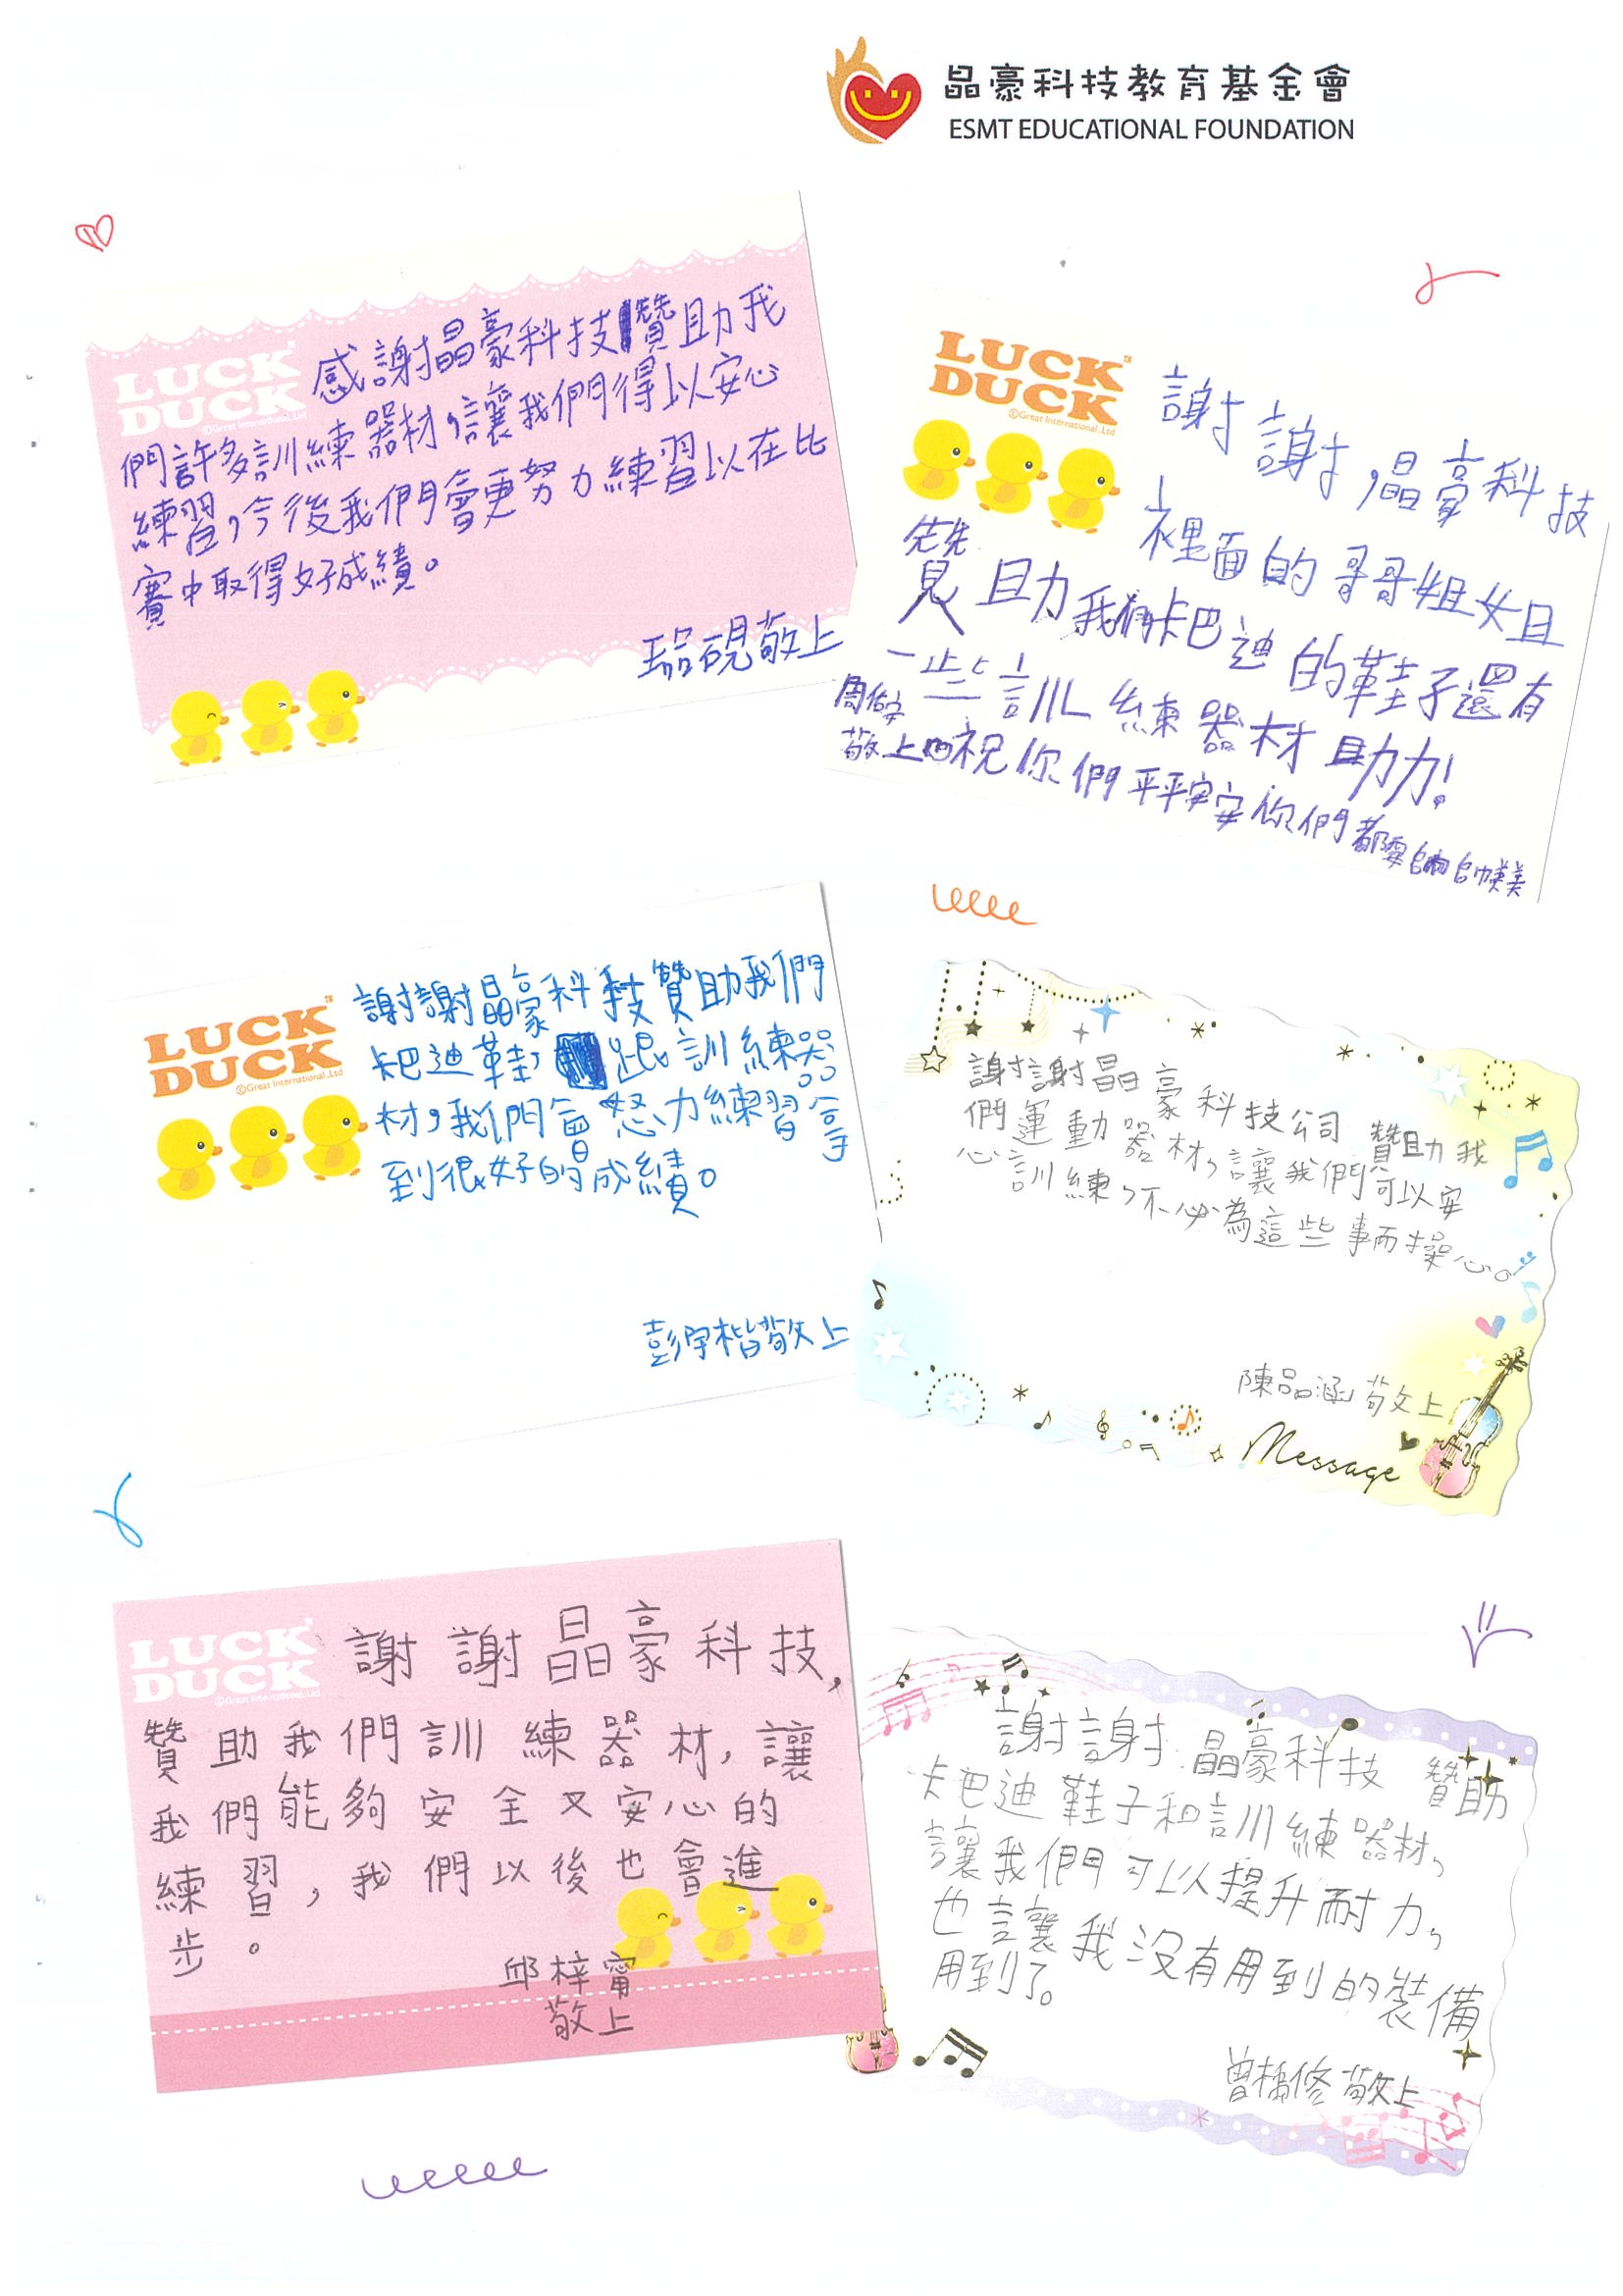 晶豪科技教育基金會
ESMT EDUCATIONAL FOUNDATION
LUCK
DUCK
©Great International.,Ltd
感謝晶豪科技贊助我
們許多訓練器材,讓我們得以安心
練習,今後我們會更努力練習以在比
賽中取得好成績。
硯敬上
LUCK
DUCK
©Great International.,Ltd
謝謝,晶豪科技
裡面的哥哥姐姐
贊助我們卡巴迪的鞋子還有
一些訓練器材助力!
周佑安
敬上 祝你們平平安安你們都要帥帥美美
LUCK
DUCK
©Great International.,Ltd
謝謝晶豪科技贊助我們
卡巴迪鞋,跟訓練器
材,我們會努力練習拿
到很好的成績。
彭宇楷敬上
謝謝晶豪科技公司贊助我
們運動器材,讓我們可以安
心訓練,不必為這些事而操心。
陳品涵敬上
Message
LUCK
DUCK
©Great International.,Ltd
謝謝晶豪科技,
贊助我們訓練器材,讓
我們能夠安全又安心的
練習,我們以後也會進
步。
邱梓甯
敬上
謝謝晶豪科技贊助
卡巴迪鞋子和訓練器材,
讓我們可以提升耐力,
也讓我沒有用到的裝備
用到了。
曾 修敬上